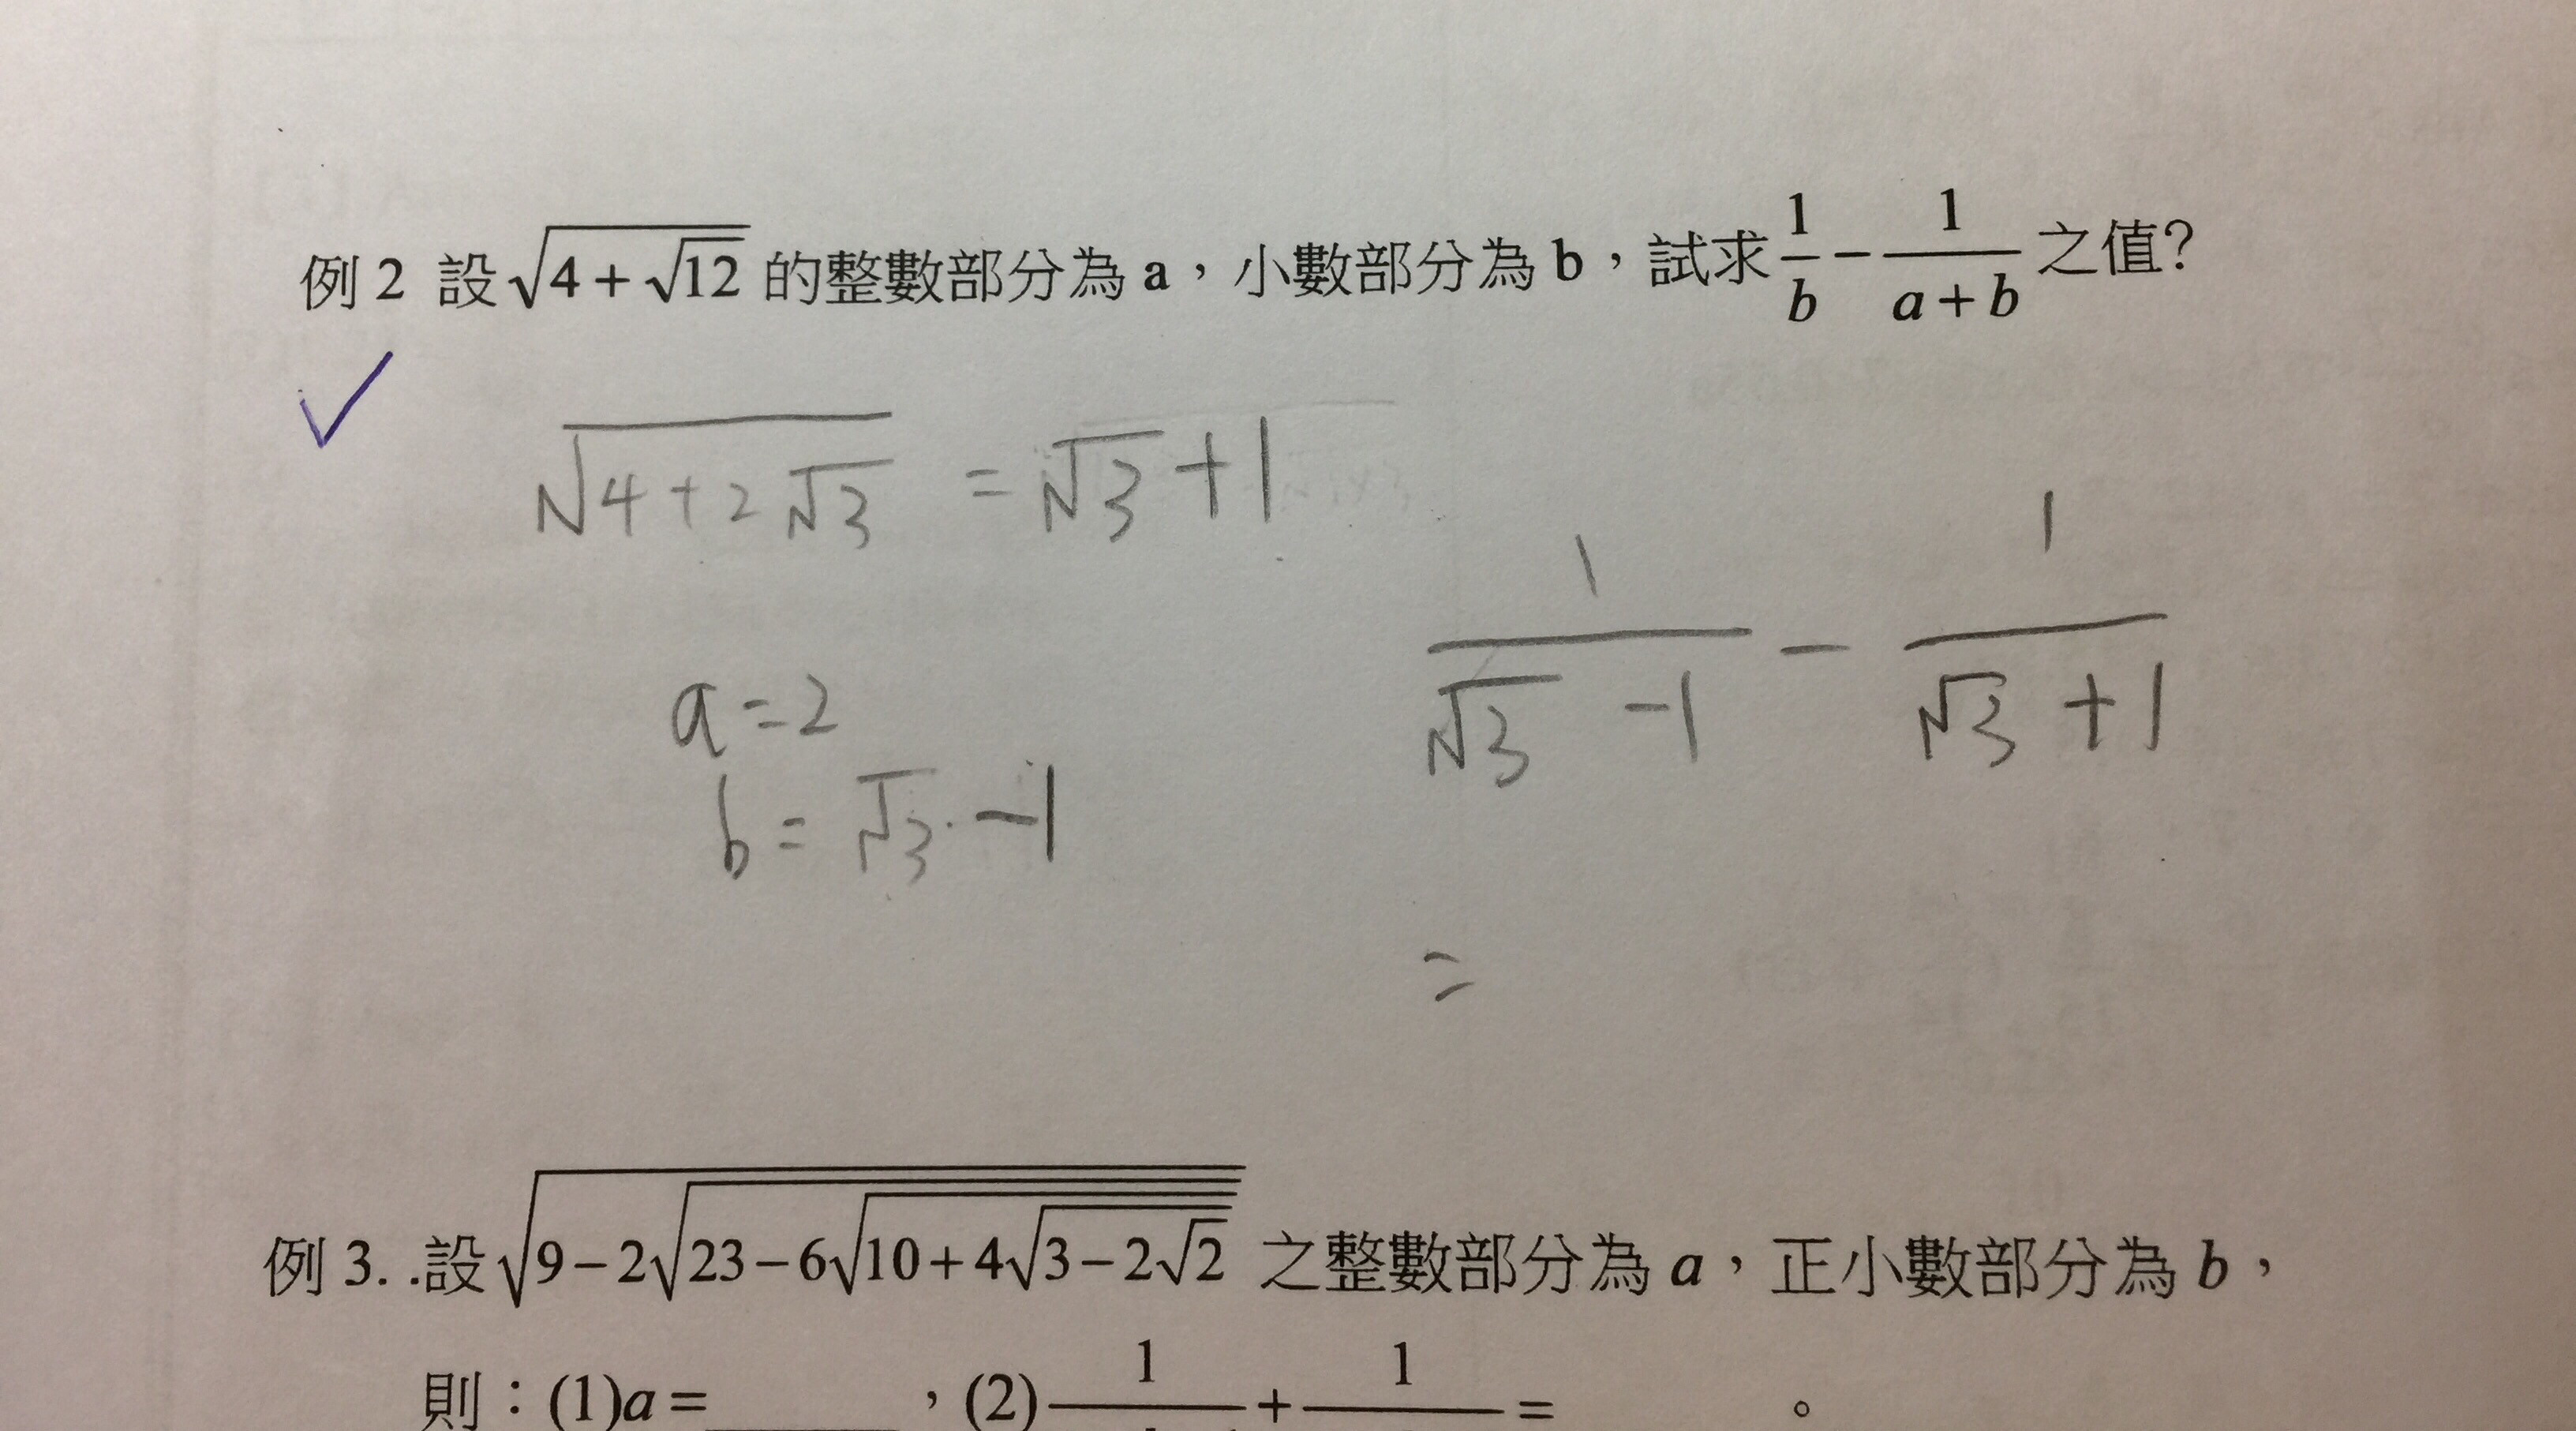 例 2 設 √(4 + √12) 的整數部分為 a，小數部分為 b，試求 1/b − 1/(a + b) 之值?
√(4 + 2√3) = √3 + 1
1/(√3 − 1) − 1/(√3 + 1)
a = 2
b = √3 − 1
=
例 3. .設 √(9 − 2√(23 − 6√(10 + 4√(3 − 2√2)))) 之整數部分為 a，正小數部分為 b，
則：(1)a = ，(2) 1/ + 1/ = 。